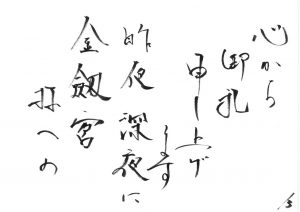 心から
御礼
申し上げ
ます
昨夜深夜に
金劔宮
拝への